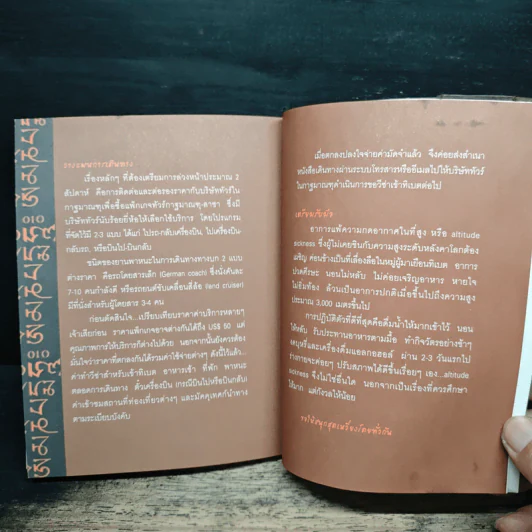 วางแผนการเดินทาง
เรื่องหลักๆ ที่ต้องเตรียมการล่วงหน้าประมาณ 2
สัปดาห์ คือการติดต่อและต่อรองราคากับบริษัททัวร์ใน
กาฐมาณฑุเพื่อซื้อแพ็กเกจทัวร์กาฐมาณฑุ-ลาซา ซึ่งมี
บริษัททัวร์นับร้อยยี่ห้อให้เลือกใช้บริการ โดยโปรแกรม
ที่จัดไว้มี 2-3 แบบ ได้แก่ ไปรถ-กลับเครื่องบิน, ไปเครื่องบิน-
กลับรถ, หรือบินไป-บินกลับ
ชนิดของยานพาหนะในการเดินทางทางบก 2 แบบ
ต่างราคา คือรถโดยสารเล็ก (German coach) ซึ่งนั่งคันละ
7-10 คนกำลังดี หรือรถยนต์ขับเคลื่อนสี่ล้อ (land cruiser)
มีที่นั่งสำหรับผู้โดยสาร 3-4 คน
ก่อนตัดสินใจ...เปรียบเทียบราคาค่าบริการหลายๆ
เจ้าเสียก่อน ราคาแพ็กเกจอาจต่างกันได้ถึง US$ 50 แต่
คุณภาพการให้บริการก็ต่างไปด้วย นอกจากนั้นยังควรต้อง
มั่นใจว่าราคาที่ตกลงกันได้รวมค่าใช้จ่ายต่างๆ ดังนี้ไว้แล้ว...
ค่าทำวีซ่าสำหรับเข้าทิเบต อาหารเช้า ที่พัก พาหนะ
ตลอดการเดินทาง ตั๋วเครื่องบิน (กรณีบินไปหรือบินกลับ)
ค่าเข้าชมสถานที่ท่องเที่ยวต่างๆ และมัคคุเทศก์นำทาง
ตามระเบียบบังคับ
เมื่อตกลงปลงใจจ่ายค่ามัดจำแล้ว จึงค่อยส่งสำเนา
หนังสือเดินทางผ่านระบบโทรสารหรืออีเมลไปให้บริษัททัวร์
ในกาฐมาณฑุดำเนินการขอวีซ่าเข้าทิเบตต่อไป
เตรียมรับมือ
อาการแพ้ความกดอากาศในที่สูง หรือ altitude
sickness ซึ่งผู้ไม่เคยชินกับความสูงระดับหลังคาโลกต้อง
เผชิญ ค่อนข้างเป็นที่เลื่องลือในหมู่ผู้มาเยือนทิเบต อาการ
ปวดศีรษะ นอนไม่หลับ ไม่ค่อยเจริญอาหาร หายใจ
ไม่อิ่มท้อง ล้วนเป็นอาการปกติเมื่อขึ้นไปถึงความสูง
ประมาณ 3,000 เมตรขึ้นไป
การปฏิบัติตัวที่ดีที่สุดคือดื่มน้ำให้มากเข้าไว้ นอน
ให้หลับ รับประทานอาหารตามมื้อ ทำกิจวัตรอย่างช้าๆ
งดบุหรี่และเครื่องดื่มแอลกอฮอล์ ผ่าน 2-3 วันแรกไป
ร่างกายจะค่อยๆ ปรับสภาพได้ดีขึ้นเรื่อยๆ เอง...altitude
sickness จึงไม่ใช่อื่นใด นอกจากเป็นเรื่องที่ควรศึกษา
ให้มาก แต่กังวลให้น้อย
ขอให้สนุกสุดเหวี่ยงโดยทั่วกัน